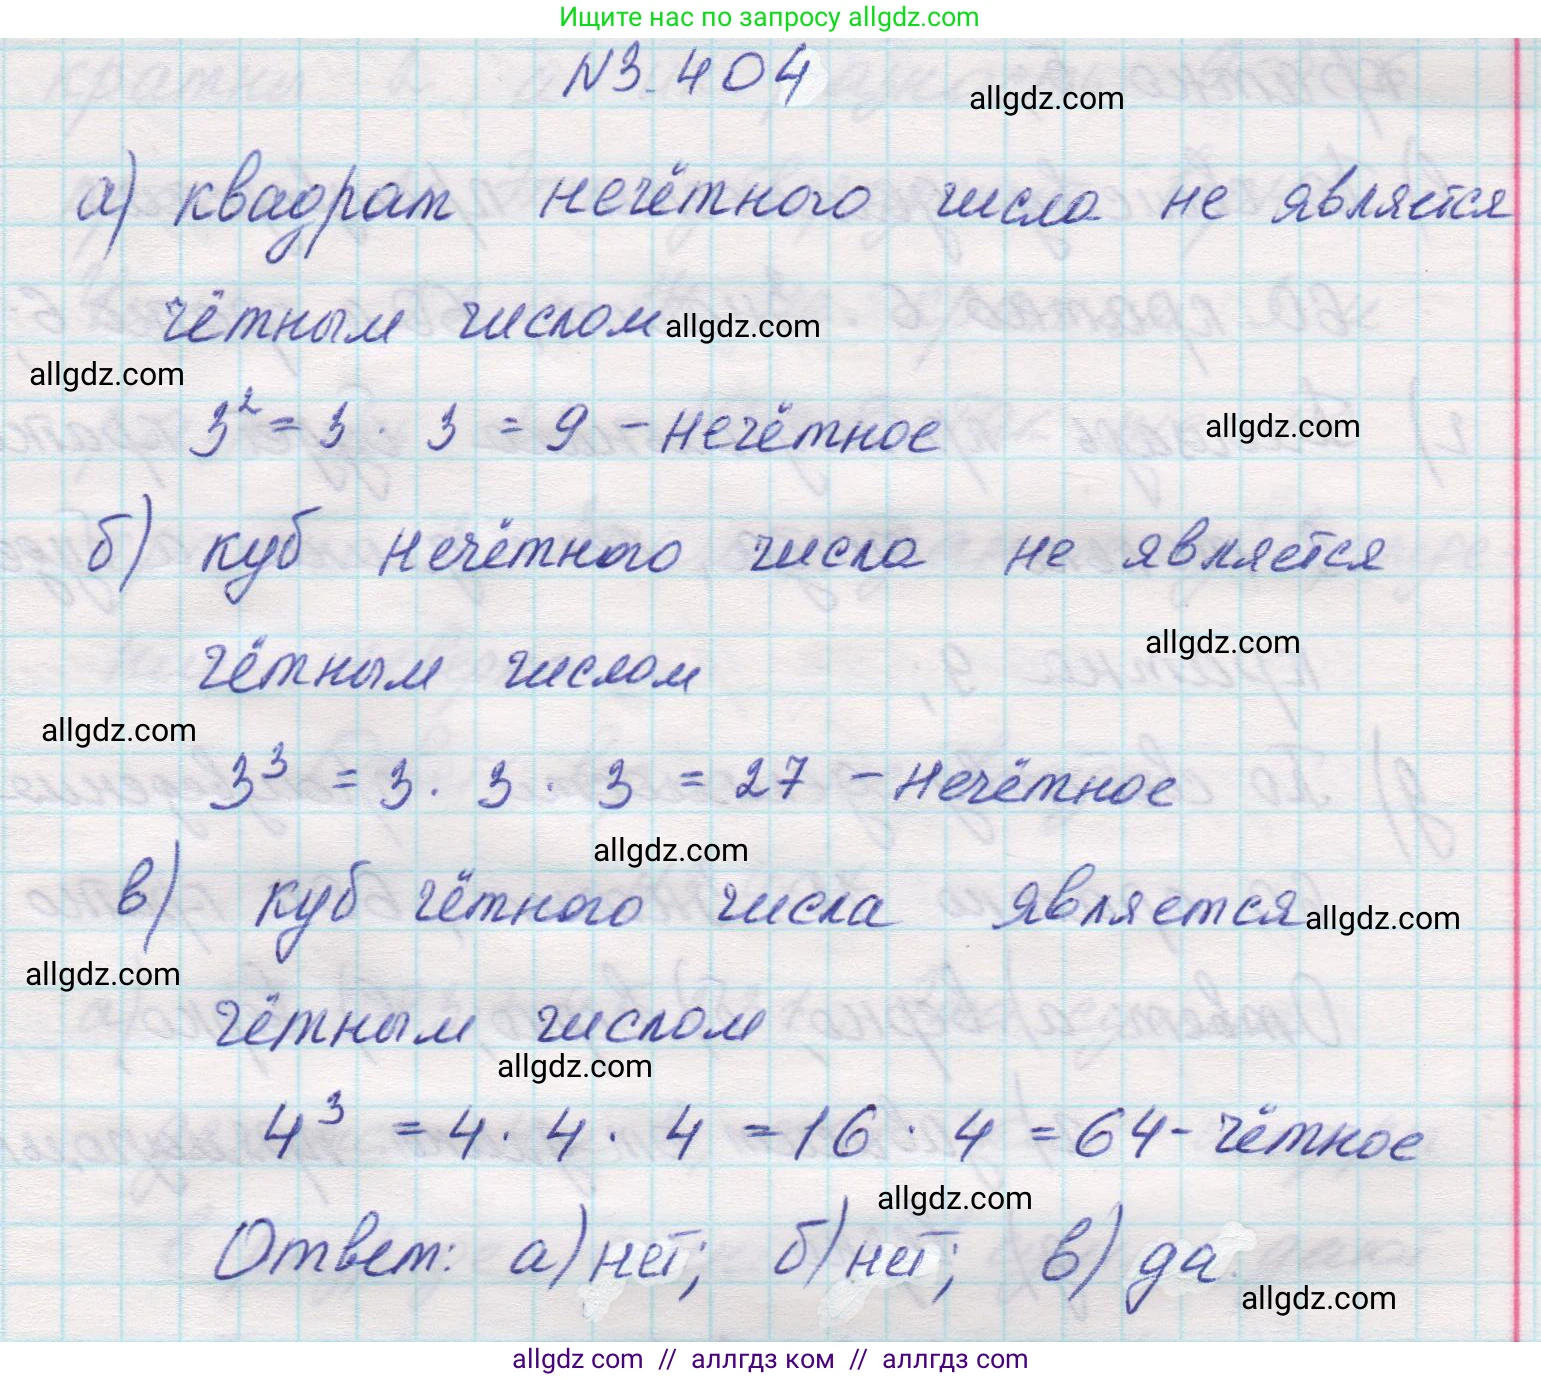 Ищите нас по запросу allgdz.com
N3.404
allgdz.com
а) квадрат нечётного числа не является
чётным числом allgdz.com
allgdz.com
3² = 3 · 3 = 9 – нечётное allgdz.com
б) куб нечётного числа не является
allgdz.com
чётным числом
allgdz.com
3³ = 3 · 3 · 3 = 27 – нечётное
allgdz.com
в) куб чётного числа является allgdz.com
allgdz.com
чётным числом
allgdz.com
4³ = 4 · 4 · 4 = 16 · 4 = 64 - чётное
allgdz.com
Ответ: а) нет; б) нет; в) да.
allgdz.com
allgdz com // аллгдз ком // аллгдз com